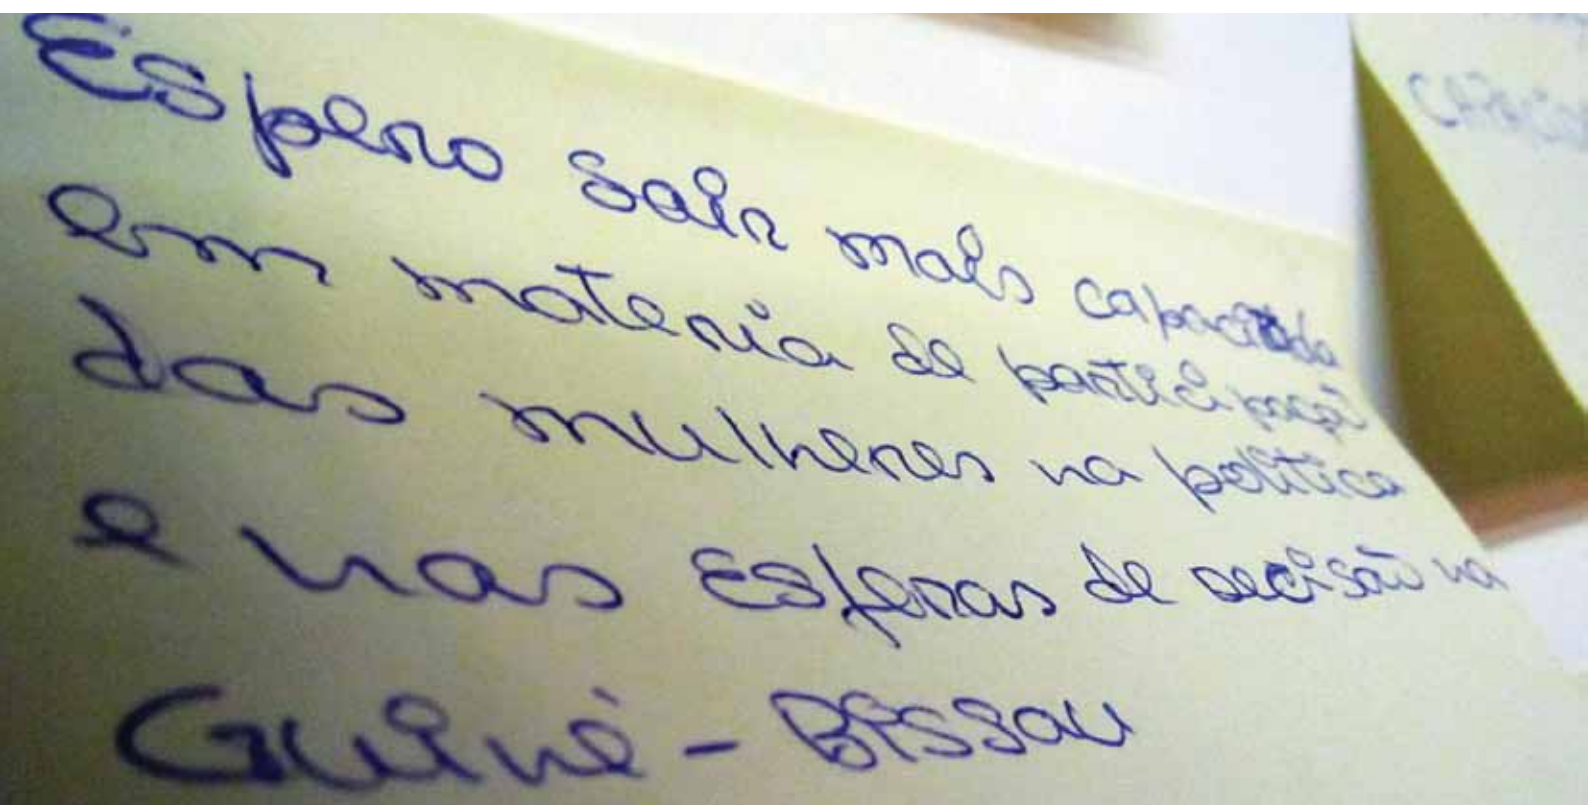 Espero sair mais capacitada
em materia de participaçã
das mulheres na politica
e nas Esferas de decisão na
Guiné - Bissau